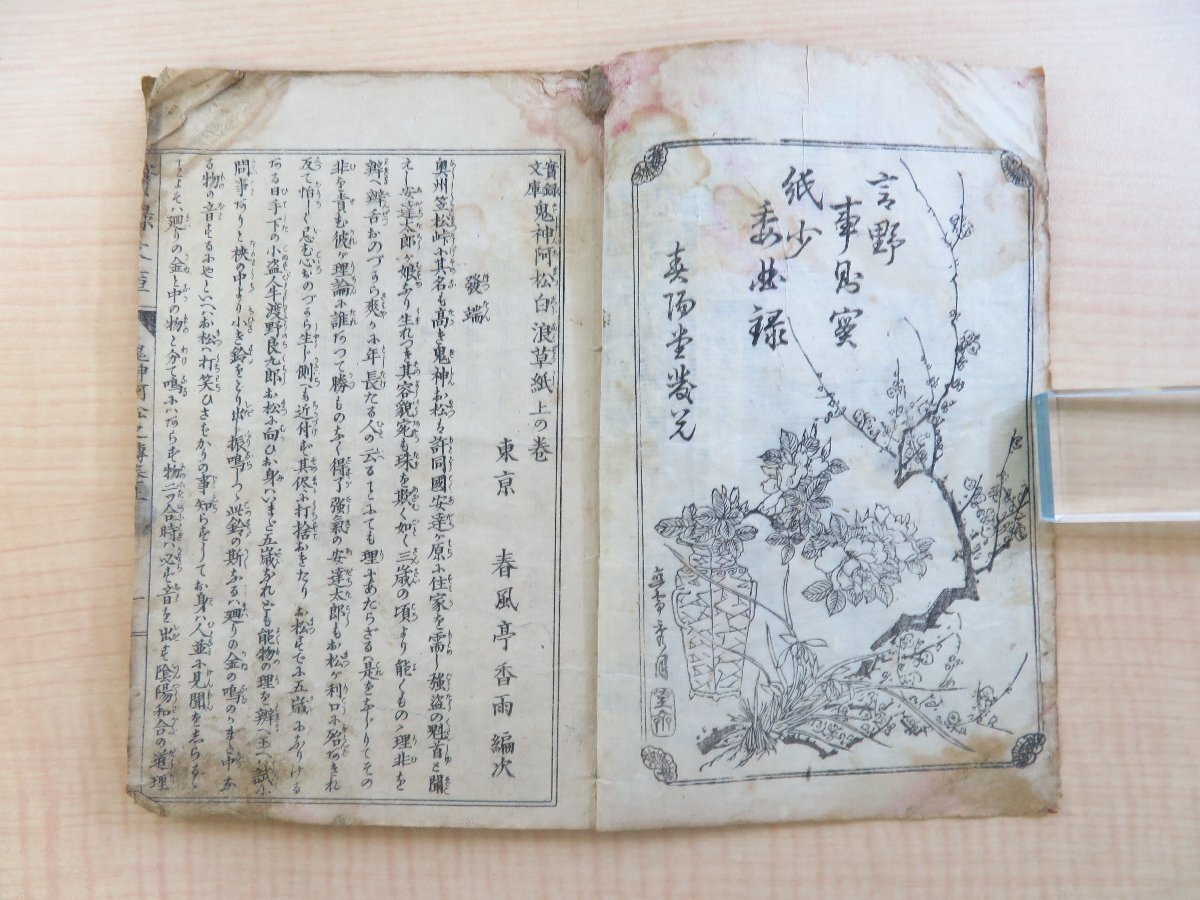 言野
事易實
紙少
委曲録
春陽堂發兌
實録文庫 鬼神阿松白浪草紙 上の卷
東京 春風亭香雨 編次
發端
奥州笠松峠に其名も高き鬼神お松ハ許同國安達ヶ原に住家を需し強盗の魁首と聞
えし安達太郎が娘なり生れつき其容貌宛も珠を欺く如く三歳の頃より能くものゝ理非を
辨へ辨舌おのづから爽かに年長たる人の云ることにても理にあたらざるハ是をなじりてその
非を責む彼が理論に誰だつて勝ものなく得了強氣の安達太郎もお松が利口に殆あきれ
反て怕しく忌む心もおのづから生じ側へも近付ず其侭に打捨おきたり お松すでに五歳になりける
ある日手下の小盗人牛渡野良九郎お松に向ひお身ハいまだ五歳なれども能物の理を辨へ玉へバ試に
問事ありと袂の中より小き鈴をとり出し振鳴しつゝ此鈴の斯なるハ廻りの金の鳴るかまた中な
る物の音するにやといへバお松ハ打笑ひさばかりの事知らずしてお身ハ人並に見聞をしらるゝ
ことよそハ廻りの金と中の物と分て鳴にハあらず物二ツ合時ハ必ず音を出す陰陽和合の道理